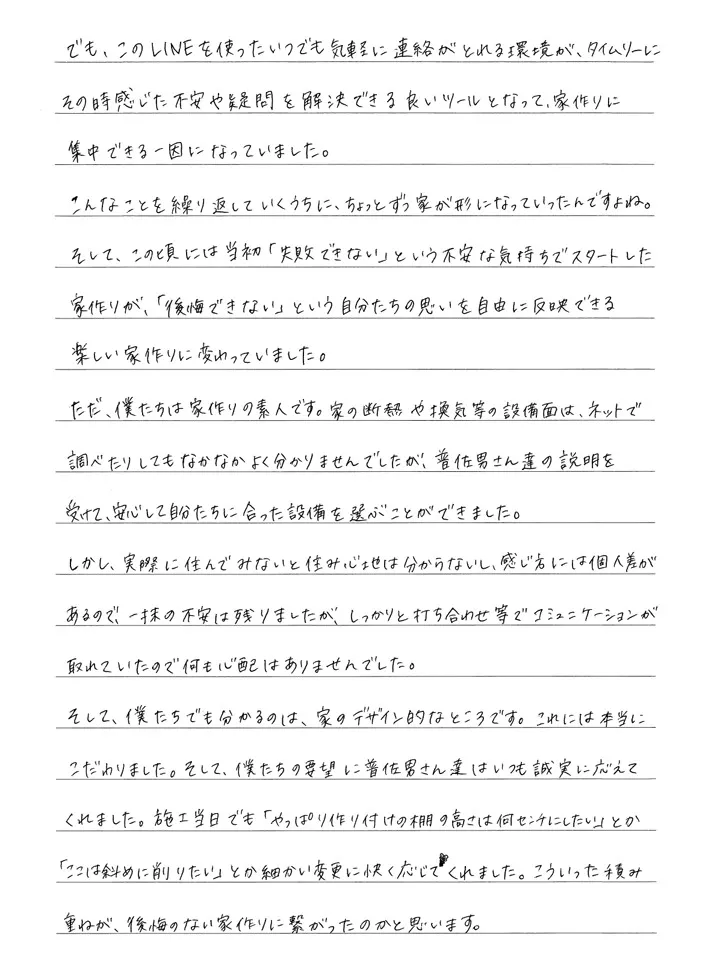 でも、このLINEを使ったいつでも気軽に連絡がとれる環境が、タイムリーに
その時感じた不安や疑問を解決できる良いツールとなって、家作りに
集中できる一因になっていました。
こんなことを繰り返していくうちに、ちょっとずつ家が形になっていったんですよね。
そして、この頃には当初「失敗できない」という不安な気持ちでスタートした
家作りが、「後悔できない」という自分たちの思いを自由に反映できる
楽しい家作りに変わっていました。
ただ、僕たちは家作りの素人です。家の断熱や換気等の設備面は、ネットで
調べたりしてもなかなかよく分かりませんでしたが、普佐男さん達の説明を
受けて、安心して自分たちに合った設備を選ぶことができました。
しかし、実際に住んでみないと住み心地は分からないし、感じ方には個人差が
あるので、一抹の不安は残りましたが、しっかりと打ち合わせ等でコミュニケーションが
取れていたので何も心配はありませんでした。
そして、僕たちでも分かるのは、家のデザイン的なところです。これには本当に
こだわりました。そして、僕たちの要望に普佐男さん達はいつも誠実に応えて
くれました。施工当日でも「やっぱり作り付けの棚の高さは何センチにしたい」とか
「ここは斜めに削りたい」とか細かい変更に快く応じてくれました。こういった積み
重ねが、後悔のない家作りに繋がったのかと思います。